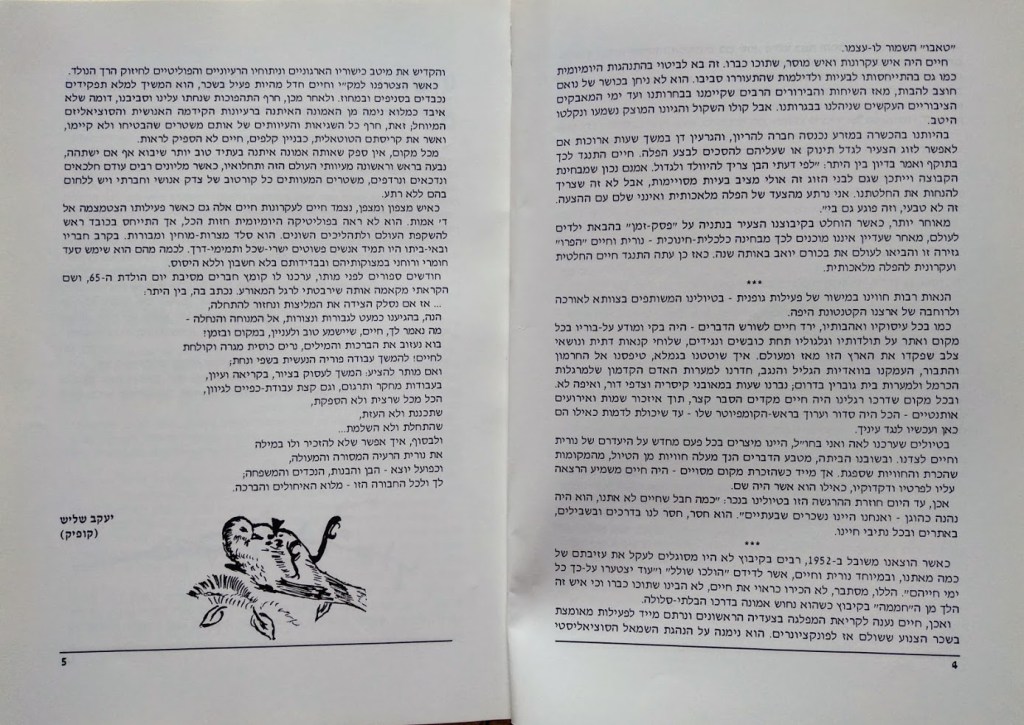 "טאבו" השמור לו-עצמו.
חיים היה איש עקרונות ואיש מוסר, שתוכו כברו. זה בא לביטוי בהתנהגות היומיומית
כמו גם בהתייחסותו לבעיות ולדילמות שהתעוררו סביבו. הוא לא ניחן בכושר של נואם
חוצב להבות, מאז השיחות והבירורים הרבים שקיימנו בבחרותנו ועד ימי המאבקים
הציבוריים העקשים שניהלנו בבגרותנו. אבל קולו השקול והגיונו המוצק נשמעו ונקלטו
היטב.
בהיותנו בהכשרה במזרע נכנסה חברה להריון, והגרעין דן במשך שעות ארוכות אם
לאפשר לזוג הצעיר לגדל תינוק או שעליהם להסכים לבצע הפלה. חיים התנגד לכך
בתוקף ואמר בדיון בין היתר: "לפי דעתי הבן צריך להיוולד ולגדול. אמנם נכון שמבחינת
הקבוצה וייתכן שגם לבני הזוג זה אולי מציב בעיות מסויימות, אבל לא זה שצריך
להנחות את החלטתנו. אני נרתע מהצעד של הפלה מלאכותית ואינני שלם עם ההצעה.
זה לא טבעי, וזה פוגע גם בי".
מאוחר יותר, כאשר הוחלט בקיבוצנו הצעיר בנתניה על "פסק-זמן" בהבאת ילדים
לעולם, מאחר שעדיין איננו מוכנים לכך מבחינה כלכלית-חינוכית - נורית וחיים "הפרו"
גזירה זו והביאו לעולם את בכורם יואב באותה שנה. כאז כן עתה התנגד חיים החלטית
ועקרונית להפלה מלאכותית.
***
הנאות רבות חווינו במישור של פעילות גופנית - בטיולינו המשותפים בצוותא לאורכה
ולרוחבה של ארצנו הקטנטונת היפה.
כמו בכל עיסוקיו ואהבותיו, ירד חיים לשורש הדברים - היה בקי ומודע על-בוריו בכל
מקום ואתר על תולדותיו וגלגוליו תחת כובשים ונגידים, שלוחי קנאות דתית ונושאי
צלב שפקדו את הארץ הזו מאז ומעולם. איך שוטטנו בגמלא, טיפסנו אל החרמון
והתבור, העמקנו בוואדיות הגליל והנגב, חדרנו למערות האדם הקדמון שלמרגלות
הכרמל ולמערות בית גוברין בדרום; נברנו שעות במאובני קיסריה וצדפי דור, ואיפה לא.
ובכל מקום שדרכו רגלינו היה חיים מקדים הסבר קצר, תוך איזכור שמות ואירועים
אותנטיים - הכל היה סדור וערוך בראש-הקומפיוטר שלו - עד שיכולת לדמות כאילו הם
כאן ועכשיו לנגד עיניך.
בטיולים שערכנו לאה ואני בחו"ל, היינו מיצרים בכל פעם מחדש על היעדרם של נורית
וחיים לצדנו. ובשובנו הביתה, מטבע הדברים הנך מעלה חוויות מן הטיול, מהמקומות
שהכרת והחוויות שספגת. אך מייד כשהזכרת מקום מסויים - היה חיים משמיע הרצאה
עליו לפרטיו ודקדוקיו, כאילו הוא אשר היה שם.
אכן, עד היום חוזרת ההרגשה הזו בטיולינו בנכר: "כמה חבל שחיים לא אתנו, הוא היה
נהנה כהוגן - ואנחנו היינו נשכרים שבעתיים". הוא חסר, חסר לנו בדרכים ובשבילים,
באתרים ובכל נתיבי חיינו.
***
כאשר הוצאנו משובל ב-1952, רבים בקיבוץ לא היו מסוגלים לעקל את עזיבתם של
כמה מאתנו, ובמיוחד נורית וחיים, אשר לדידם "הולכו שולל" ו"עוד יצטערו על-כך כל
ימי חייהם". הללו, מסתבר, לא הכירו כראוי את חיים, לא הבינו שתוכו כברו וכי איש זה
הלך מן ה"חממה" בקיבוץ כשהוא נחוש אמונה בדרכו הבלתי-סלולה.
ואכן, חיים נענה לקריאת המפלגה בצעדיה הראשונים ונרתם מייד לפעילות מאומצת
בשכר הצנוע ששולם אז לפונקציונרים. הוא נימנה על הנהגת השמאל הסוציאליסטי
4
והקדיש את מיטב כישוריו הארגוניים וניתוחיו הרעיוניים והפוליטיים לחיזוק הרך הנולד.
כאשר הצטרפנו למק"י וחיים חדל מהיות פעיל בשכר, הוא המשיך למלא תפקידים
נכבדים בסניפים ובמחוז. ולאחר מכן, חרף התהפוכות שנחתו עלינו וסביבנו, דומה שלא
איבד כמלוא נימה מן האמונה האיתנה ברעיונות הקידמה האנושית והסוציאליזם
המיוחל; זאת, חרף כל השגיאות והעיוותים של אותם משטרים שהבטיחו ולא קיימו,
ואשר את קריסתם הטוטאלית, כבניין קלפים, חיים לא הספיק לראות.
מכל מקום, אין ספק שאותה אמונה איתנה בעתיד טוב יותר שיבוא אף אם ישתהה,
נבעה בראש וראשונה מעיוותי העולם הזה ותחלואיו, כאשר מליונים רבים עודם חלכאים
ונדכאים ונרדפים, משטרים המעוותים כל קורטוב של צדק אנושי וחברתי ויש ללחום
בהם ללא רתע.
כאיש מצפון ומצפן, נצמד חיים לעקרונות חיים אלה גם כאשר פעילותו הצטמצמה אל
ד' אמות. הוא לא ראה בפוליטיקה היומיומית חזות הכל, אך התייחס בכובד ראש
להשקפת העולם ולתהליכים השונים. הוא סלד מצרות-מוחין ומבורות. בקרב חבריו
ובאי-ביתו היו תמיד אנשים פשוטים ישרי-שכל ותמימי-דרך. לכמה מהם הוא שימש סעד
חומרי ורוחני במצוקותיהם ובבדידותם בלא חשבון וללא היסוס.
חודשים ספורים לפני מותו, ערכנו לו קומץ חברים מסיבת יום הולדת ה-65, ושם
לקראת המאורע הזה הקראתי מקאמה אותה שירבטתי לרגל המאורע. נכתב בה, בין היתר:
... אז אם נסלק הצידה את המליצות ונחזור להתחלה,
הנה, בהגיענו כמעט לגבורות ונצורות, אל המנוחה והנחלה -
מה נאמר לך, חיים, שיישמע טוב ולעניין, במקום ובזמן!
בוא נעזוב את הברכות והמילים, נרים כוסית מגרה וקולחת
לחיים! להמשך עבודה פוריה הנעשית בשפי ונחת;
ואם מותר להציע: המשך לעסוק בציור, בקריאה ועיון,
בעבודות מחקר ותרגום, וגם קצת עבודת-כפיים לגיוון,
הכל מכל שרצית ולא הספקת,
שתכננת ולא העזת,
שהתחלת ולא השלמת...
ולבסוף, איך אפשר שלא להזכיר ולו במילה
את נורית הרעיה המסורה והמעולה,
וכפועל יוצא - הבן והבנות, הנכדים והמשפחה;
לך ולכל החבורה הזו - מלוא האיחולים והברכה.
יעקב שליש
(קופיק)
5